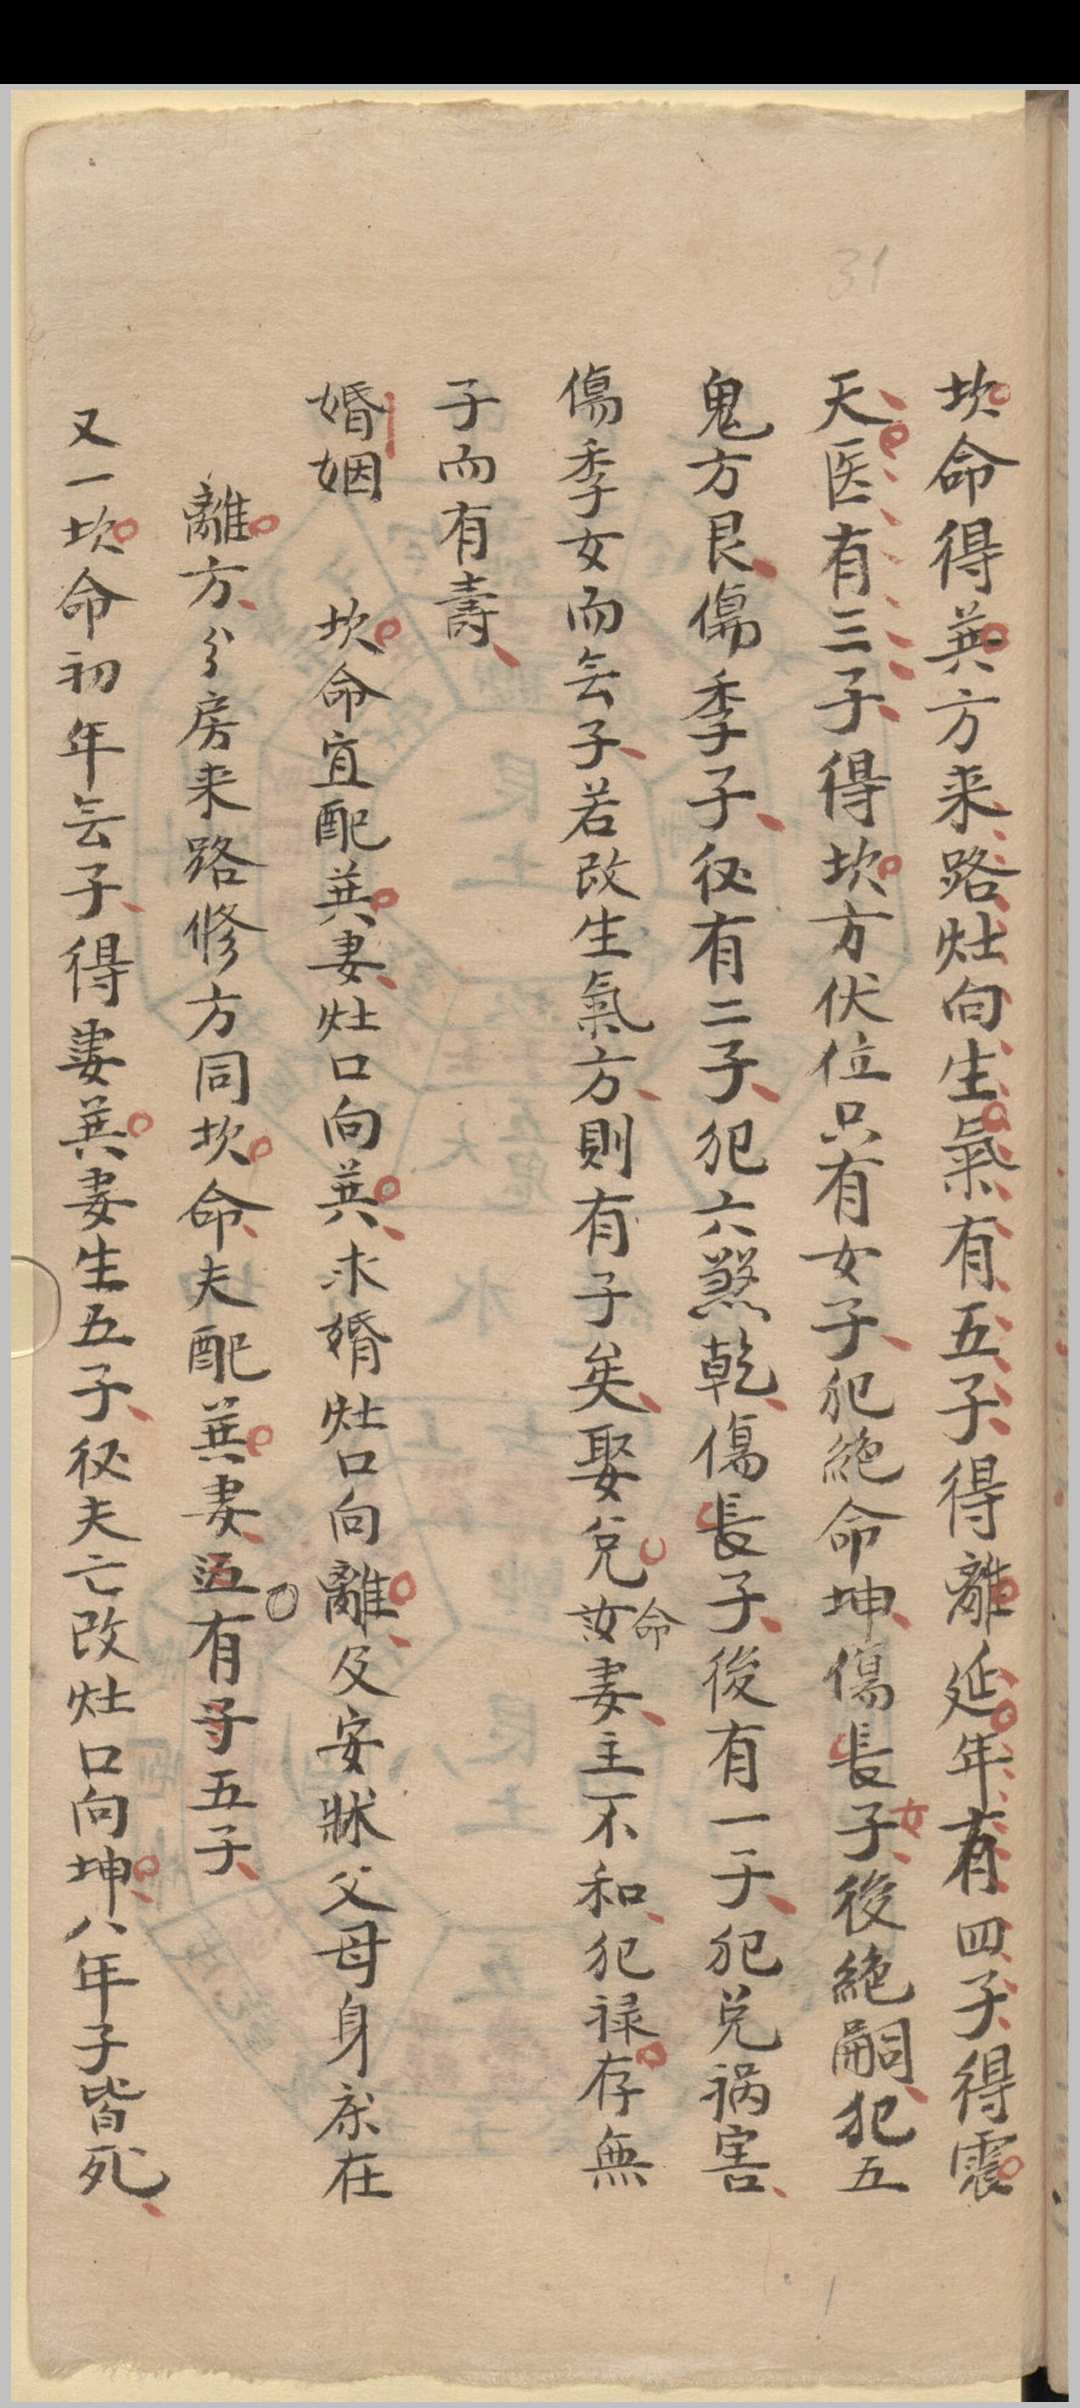 31
坎命得巽方来路灶向生氣有五子得離延年有四子得震
天医有三子得坎方伏位只有女子犯絶命坤傷長子女後絶嗣犯五
鬼方艮傷季子後有二子犯六煞乾傷長子後有一子犯兌祸害
傷季女而㒇子若改生氣方則有子矣娶兌命妻主不和犯禄存無
子而有壽
婚姻 坎命宜配巽妻灶口向巽求婚灶口向離及安牀父母身床在
離方分房来路修方同坎命夫配巽妻有子五子
又一坎命初年㒇子得妻巽妻生五子後夫亡改灶口向坤八年子皆死